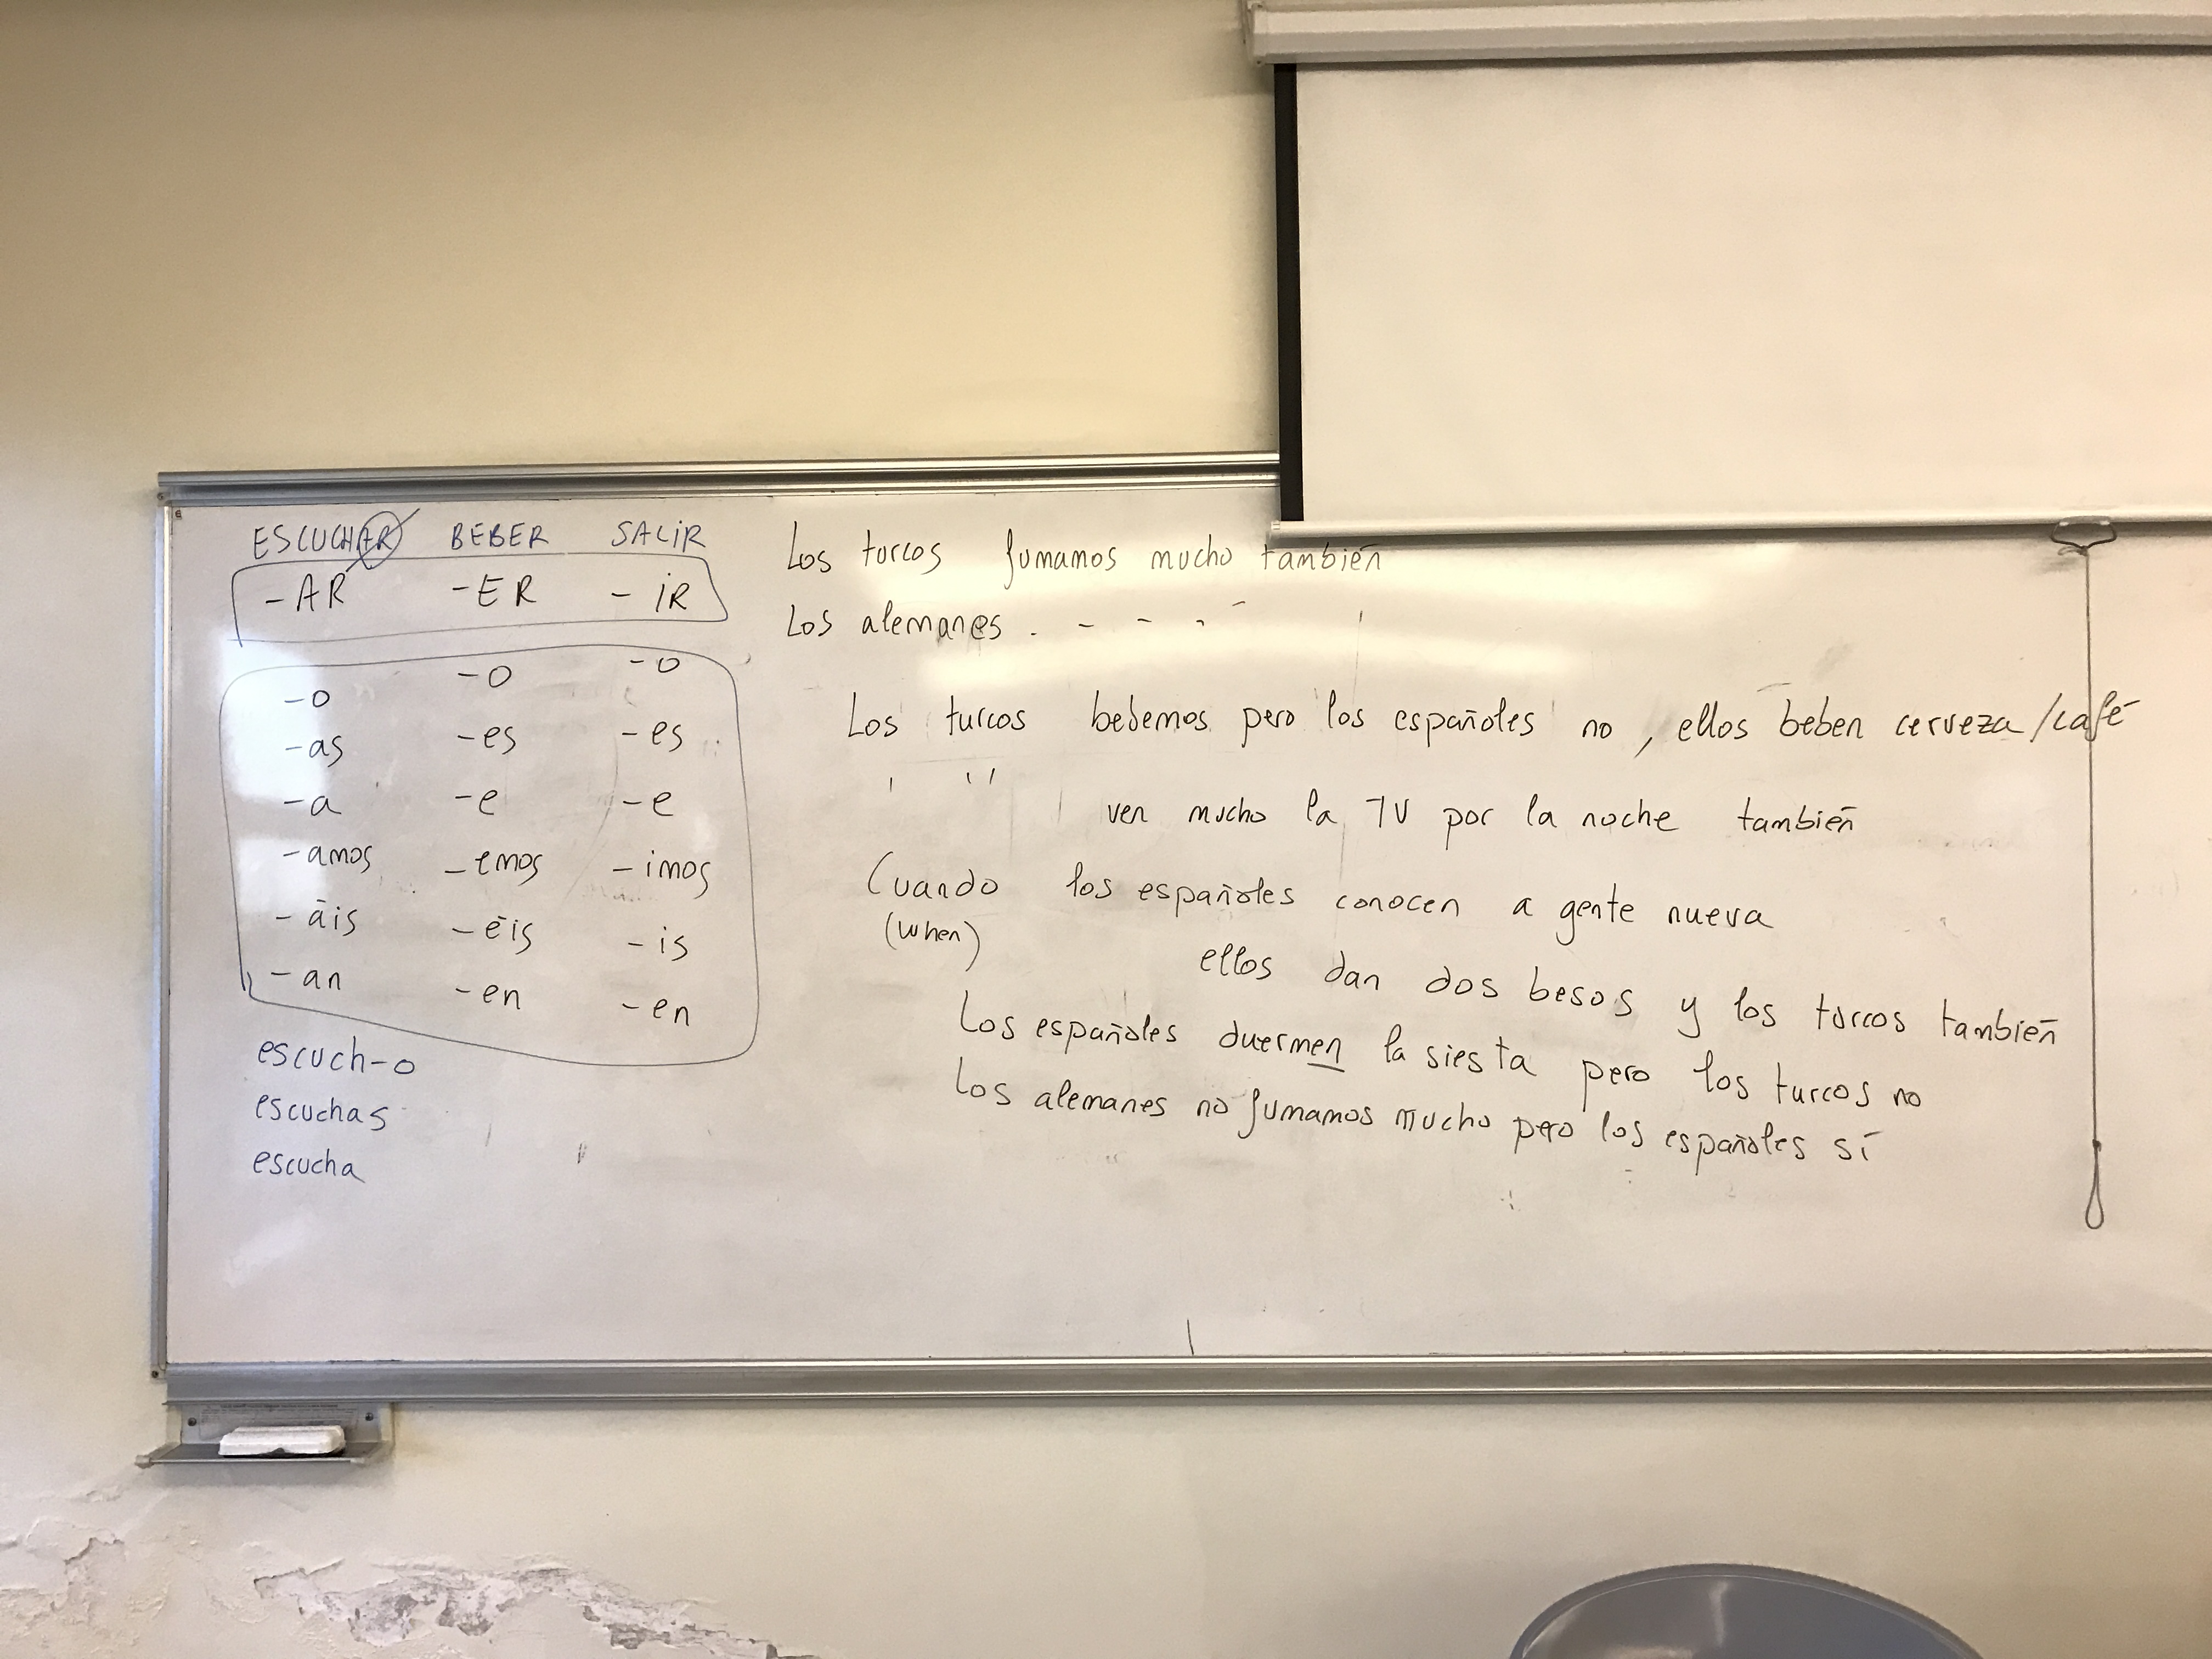 ESCUCHAR BEBER SALIR
-AR -ER -IR
-o -o -o
-as -es -es
-a -e -e
-amos -emos -imos
-áis -éis -is
-an -en -en
escuch-o
escuchas
escucha
Los turcos fumamos mucho también
Los alemanes . - - -
Los turcos bebemos pero los españoles no, ellos beben cerveza/café
' '' ven mucho la TV por la noche también
Cuando los españoles conocen a gente nueva
(when)
ellos dan dos besos y los turcos también
Los españoles duermen la siesta pero los turcos no
Los alemanes no fumamos mucho pero los españoles sí